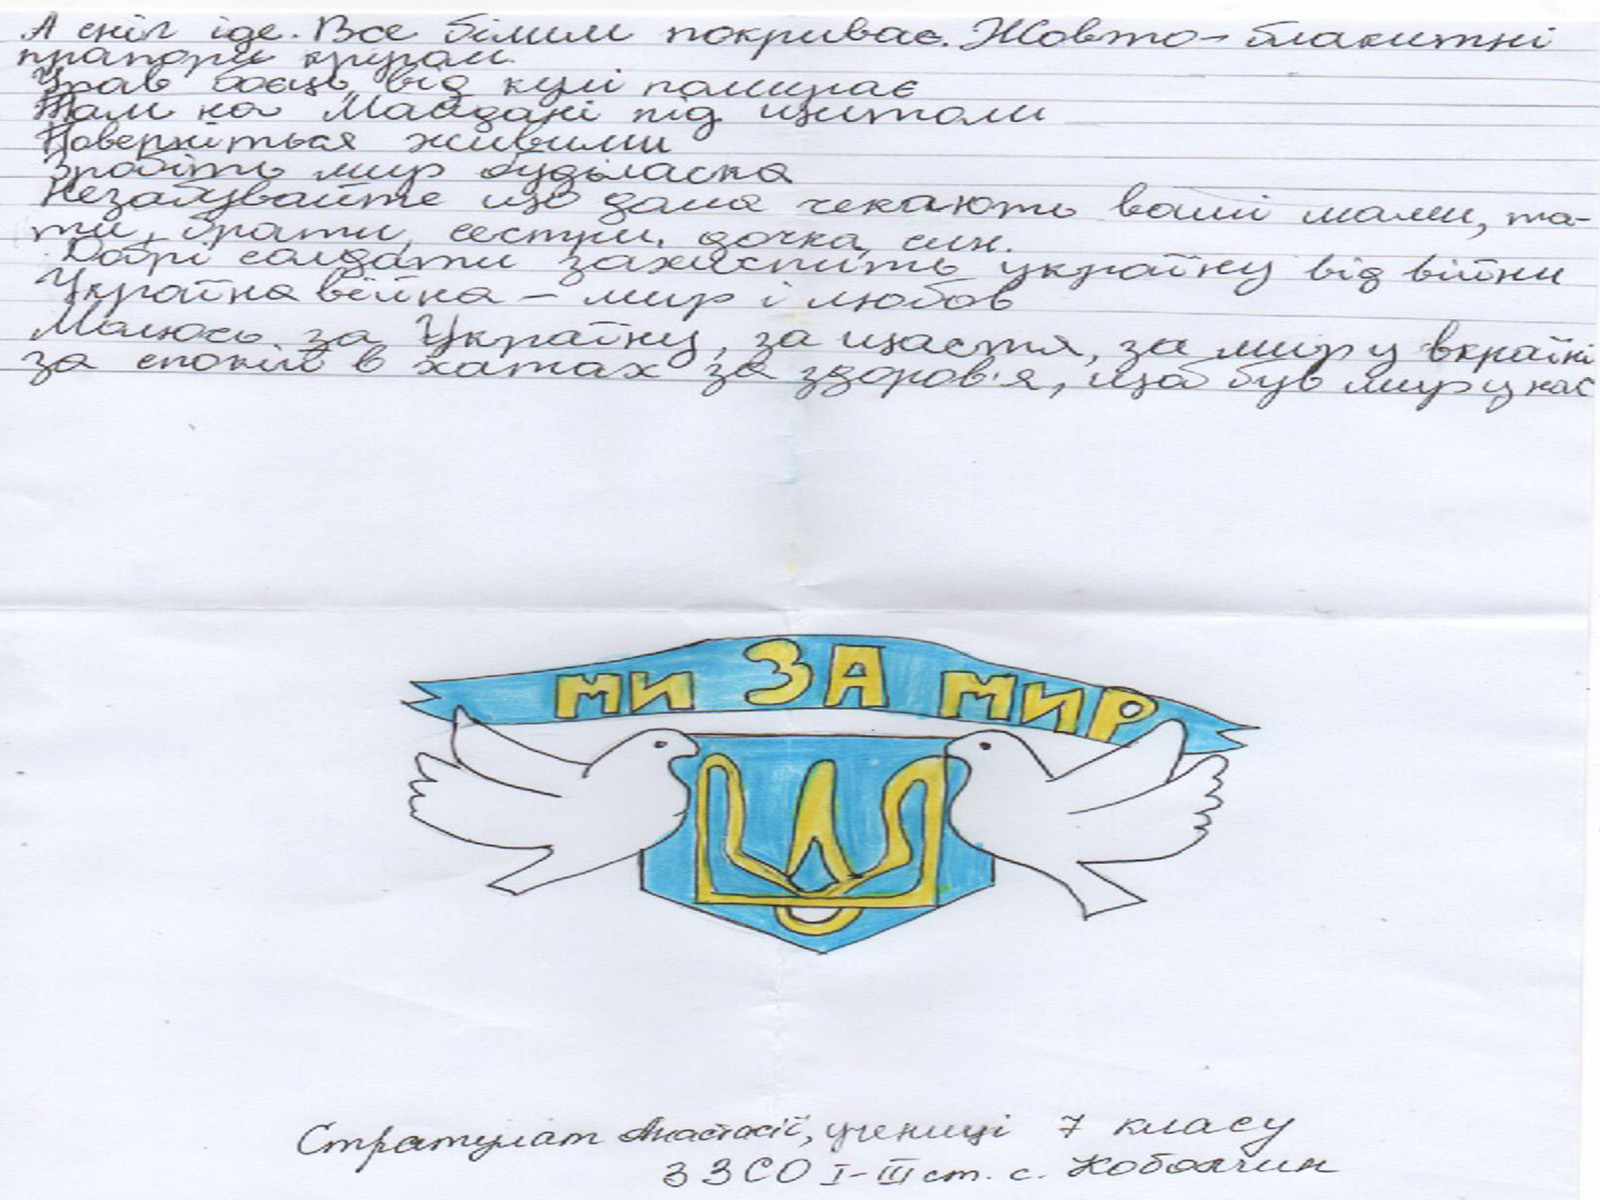 А сніг іде. Все білим покриває. Жовто-блакитні
прапори кругом.
Упав боєць від кулі помирає
Там на Майдані під щитом
Поверніться живими
Зробіть мир будьласка
Незабувайте що дома чекають ваші мами, та-
ти, брати, сестри, дочка, син.
Добрі солдати захистить україну від війни
Україна війна - мир і любов
Молюсь за Україну, за щастя, за мир у вкраїні
за спокій в хатах за здоров'я, щоб був мир у нас
МИ ЗА МИР
Стратулат Анастасії, учениці 7 класу
ЗЗСО I-III ст. с. Кобольчин